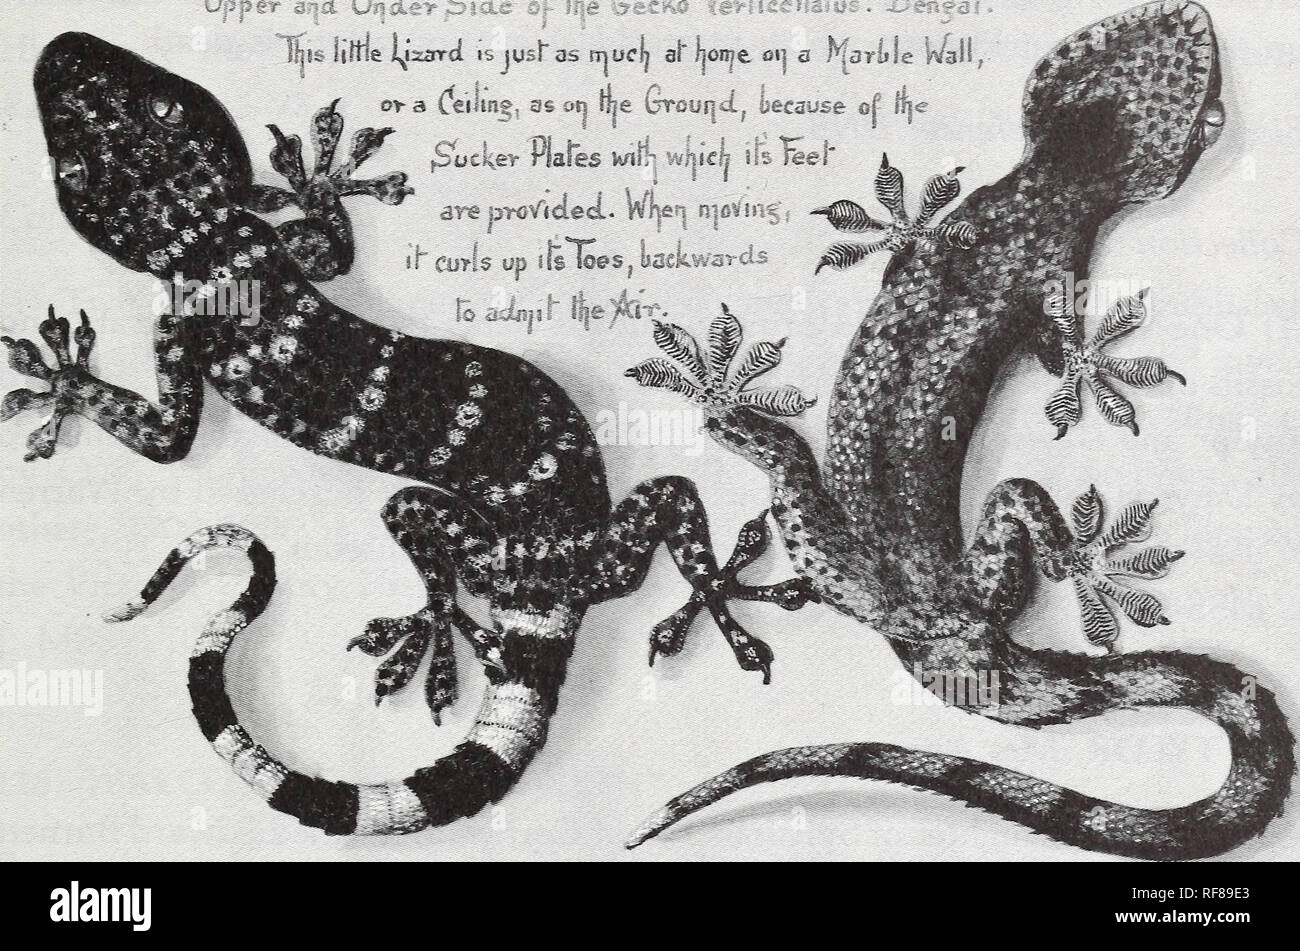 Upper and Under Side of the Gecko Verticellatus. Bengal.
This little Lizard is just as much at home on a Marble Wall,
or a Ceiling, as on the Ground, because of the
Sucker Plates with which it's Feet
are provided. When moving,
it curls up it's Toes, backwards
to admit the Air.
alamy
alamy
Image ID: RF89E3
www.alamy.com